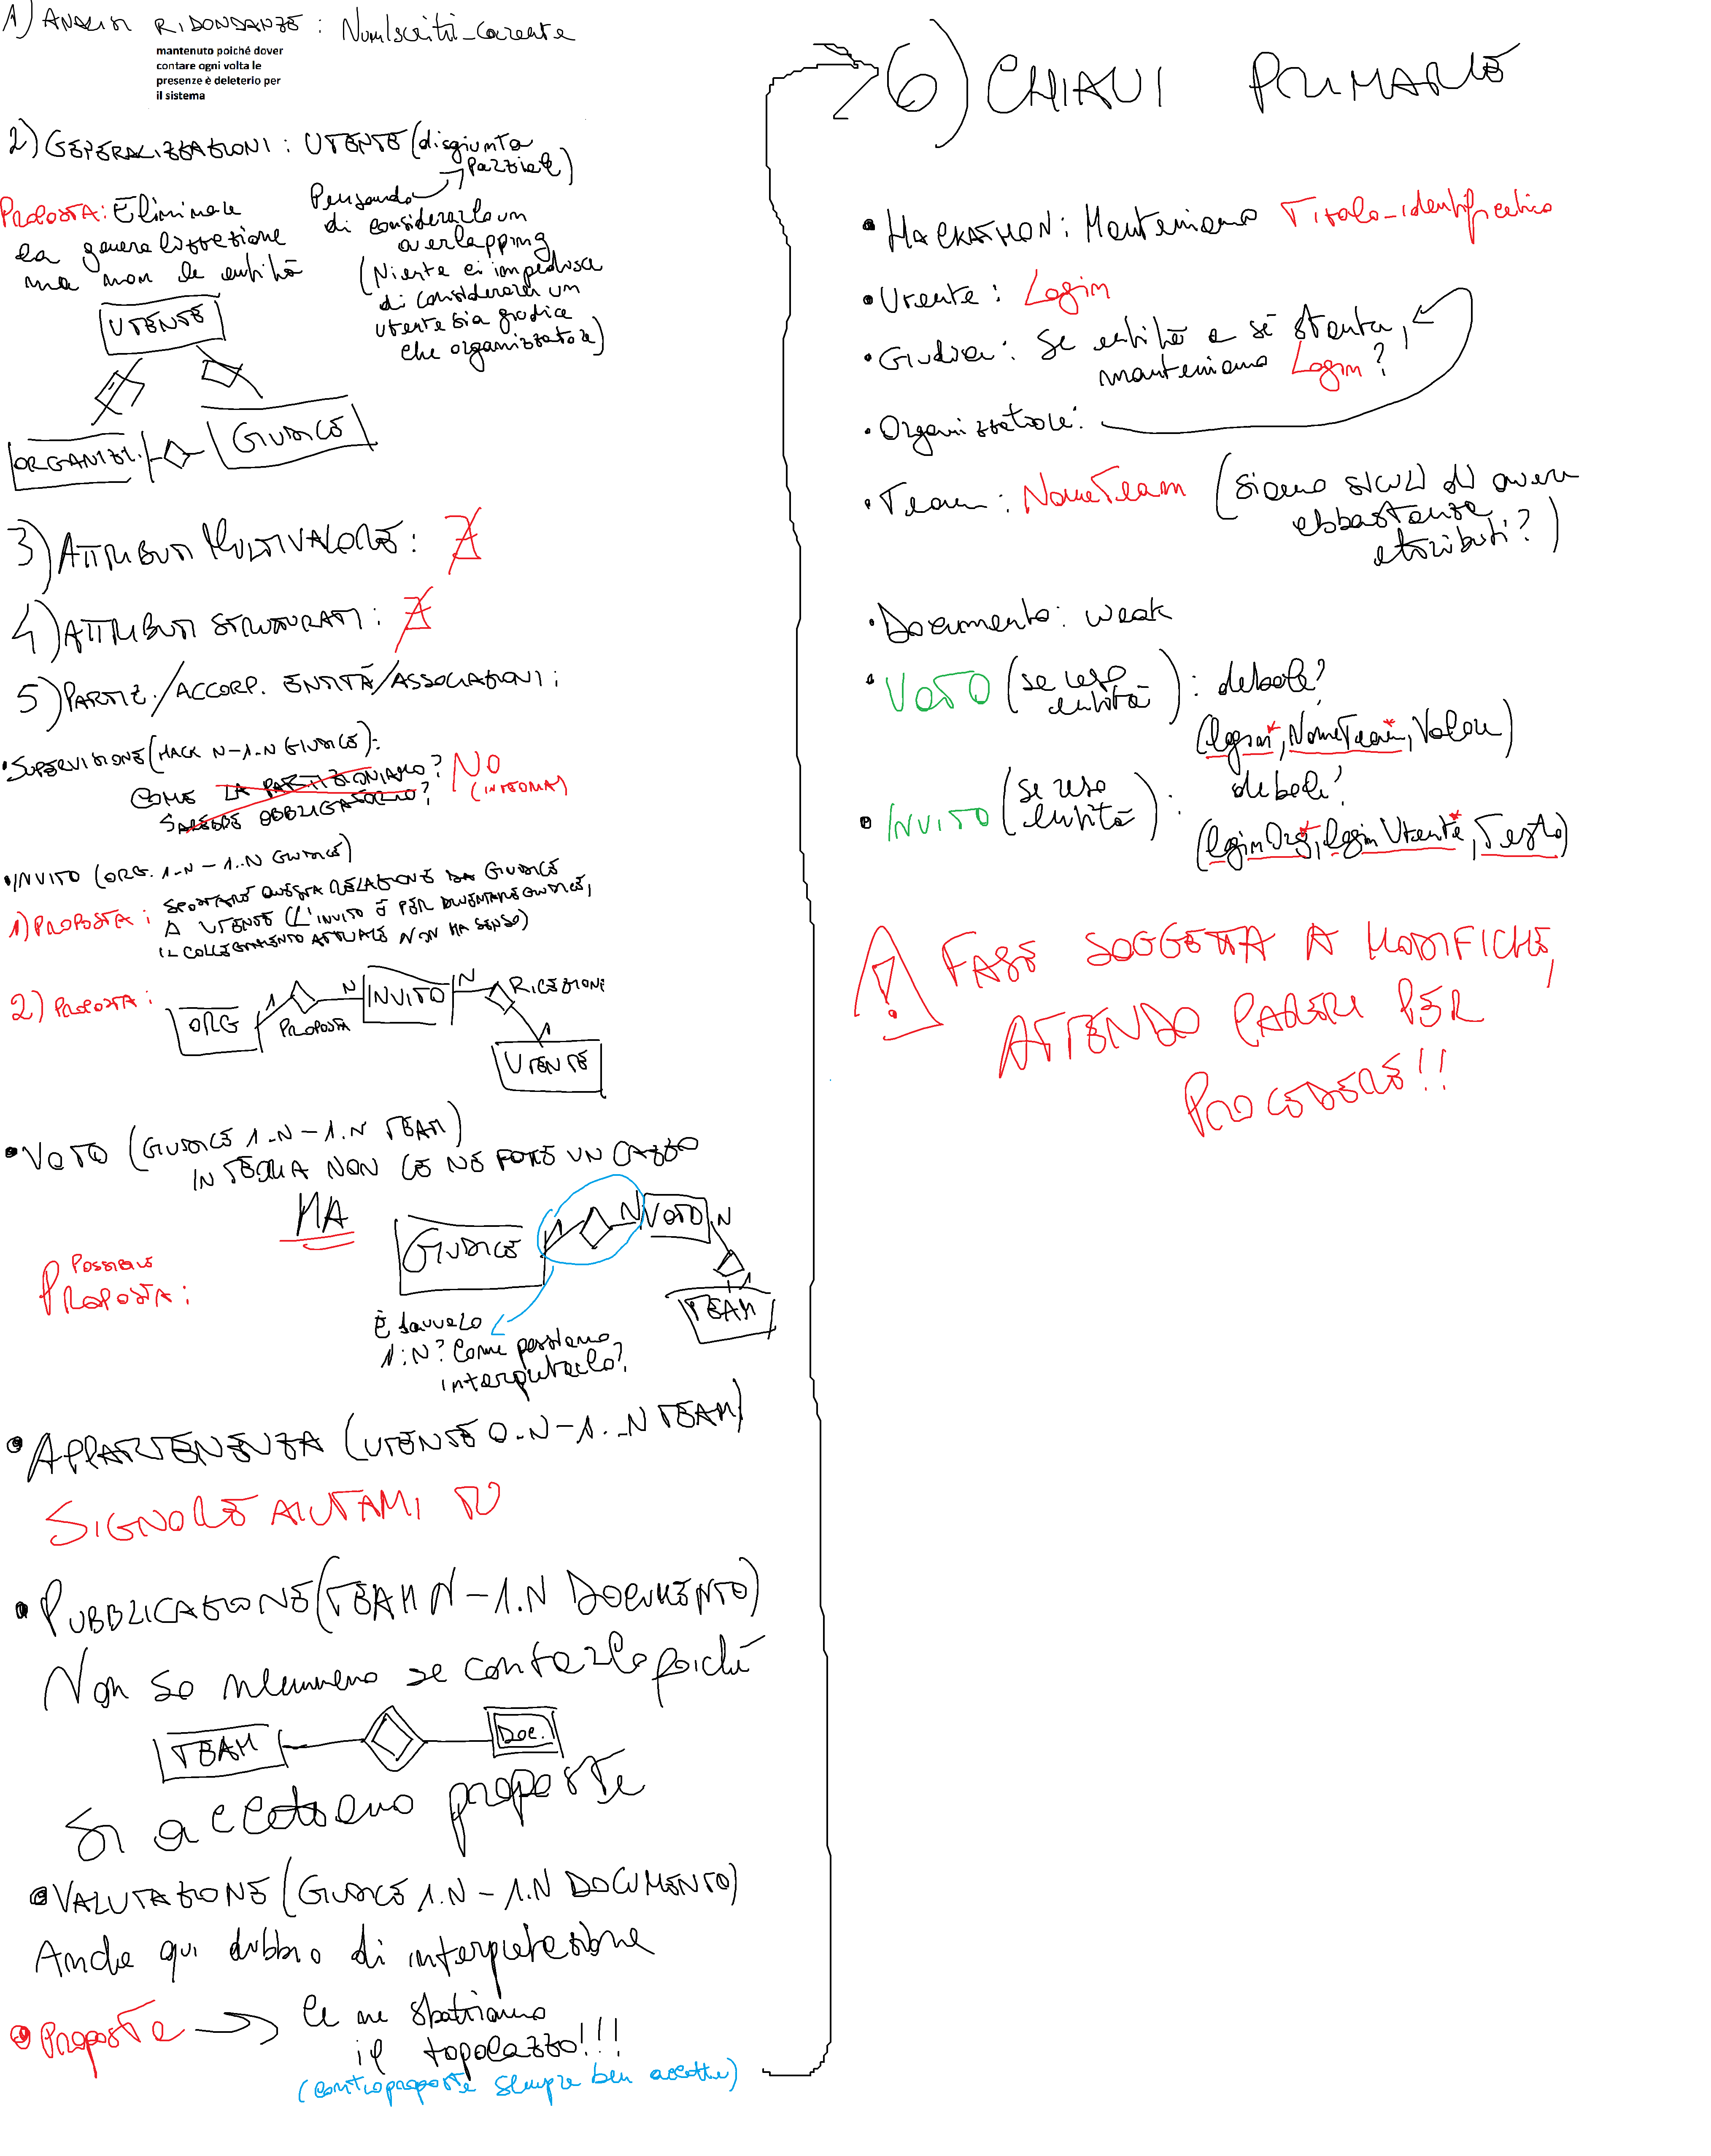 1) ANALISI RIDONDANZE: NumIscritti_corrente
mantenuto poiché dover
contare ogni volta le
presenze è deleterio per
il sistema
2) GENERALIZZAZIONI: UTENTE (disgiunta
parziale)
PROPOSTA: Eliminare
la generalizzazione
ma non le entità
Pensando
di considerarlo un
overlapping
(Niente ci impedisce
di considerare un
utente sia giudice
che organizzatore)
UTENTE
ORGANIZZ.
GIUDICE
3) ATTRIBUTI MULTIVALORE: ∄
4) ATTRIBUTI STRUTTURATI: ∄
5) PARTIZ./ACCORP. ENTITÀ/ASSOCIAZIONI:
• SUPERVISIONE (HACK N-1..N GIUDICE):
COME LA PARTIZIONIAMO? NO
SAREBBE OBBLIGATORIO? (INTEGRA)
• INVITO (ORG. 1..N - 1..N GIUDICE)
1) PROPOSTA: SPOSTARE QUESTA RELAZIONE DA GIUDICE
A UTENTE (L'INVITO È PER DIVENTARE GIUDICE,
IL COLLEGAMENTO ATTUALE NON HA SENSO)
2) PROPOSTA:
ORG 1 N INVITO N RICEZIONE
PROPOSTA
1
UTENTE
• VOTO (GIUDICE 1..N - 1..N TEAM)
IN TEORIA NON CE NE FOTTE UN CAZZO
MA
POSSIBILE
PROPOSTA:
GIUDICE 1 N VOTO N
1
TEAM
È davvero
1:N? Come possiamo
interpretarlo?
• APPARTENENZA (UTENTE 0..N - 1..N TEAM)
SIGNORE AIUTAMI TU
• PUBBLICAZIONE (TEAM N - 1..N DOCUMENTO)
Non so nemmeno se contarlo poiché
TEAM
DOC.
Si accettano proposte
• VALUTAZIONE (GIUDICE 1..N - 1..N DOCUMENTO)
Anche qui dubbio di interpretazione
• Proposte → Ce ne sbattiamo
il topolazzo!!!
(controproposte sempre ben accette)
6) CHIAVI PRIMARIE
• HACKATHON: Manteniamo Titolo-identificativo
• Utente: Login
• Giudice: Se entità a sé stante,
manteniamo Login?
• Organizzatore:
• Team: NomeTeam (siamo sicuri di avere
abbastanza
attributi?)
• Documento: weak
• VOTO (se reso
entità): debole?
(login*, NomeTeam*, Valore)
• INVITO (se reso
entità): debole?
(loginOrg*, loginUtente*, Testo)
! FASE SOGGETTA A MODIFICHE,
ATTENDO PARERI PER
PROCEDERE!!